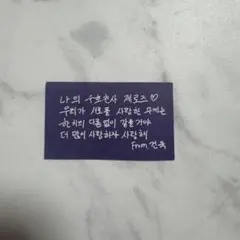 나의 수호천사 제로즈♡
우리가 서로를 사랑한 무게는
한 치의 다름없이 같을거야
더 많이 사랑하자 사랑해
From 건욱